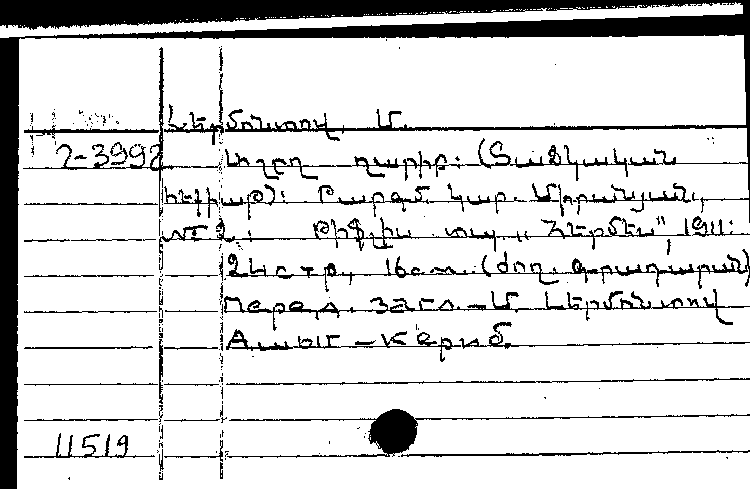 Լերմոնտով, Մ.
2-3992 Աշըղ ղարիբ: (Տաճկական
հեքիաթ): Թարգմ. Կար. Միրանյան,
№ 2: Թիֆլիս տպ. „Հերմես", 1911:
24 с. տր., 16 с.m. (ժող. գրադարան)
Перед. загл. – Մ. Լերմոնտով
Ашыг – Кериб.
11519